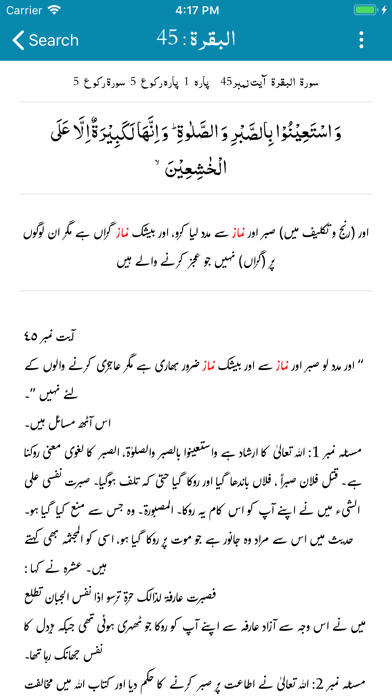 Carrier 4:17 PM
Search البقرة : 45
سورۃ البقرۃ آیت نمبر45 پارہ 1 پارہ رکوع 5 سورۃ رکوع 5
وَاسْتَعِيْنُوْا بِالصَّبْرِ وَالصَّلٰوةِ ۭ وَاِنَّهَا لَكَبِيْرَةٌ اِلَّا عَلَي
الْخٰشِعِيْنَ ۙ
اور (رنج و تکلیف میں) صبر اور نماز سے مدد لیا کرو، اور بیشک نماز گراں ہے مگر ان لوگوں
پر (گراں) نہیں جو عجز کرنے والے ہیں
آیت نمبر ٤٥
’’ اور مدد لو صبر اور نماز سے اور بیشک نماز ضرور بھاری ہے مگر عاجزی کرنے والوں کے
لئے نہیں ’’۔
اس آٹھ مسائل ہیں۔
مسئلہ نمبر 1: اللہ تعالیٰ کا ارشاد ہے واستعینوا بالصبر والصلوٰۃ، الصبر کا لغوی معنی روکنا
ہے۔ قتل فلان صبراً ، فلاں باندھا گیا اور روکا گیا حتی کہ تلف ہوگیا۔ صبرت نفسی علی
الشیء میں نے اپنے آپ کو اس کام پہ روکا۔ المصبورۃ۔ وہ جس سے منع کیا گیا ہو۔
حدیث میں اس سے مراد وہ جانور ہے جو موت پر روکا گیا ہو، اسی کو المجثمہ بھی کہتے
ہیں۔ عشرہ نے کہا :
فصبرت عارفۃ لذالک حرۃ ترسو اذا نفس الجبان تطلع
میں نے اس وجہ سے آزاد عارفہ سے اپنے آپ کو روکا جو ٹھہری ہوئی تھی جبکہ بزدل کا
نفس جھانک رہا تھا۔
مسئلہ نمبر 2: اللہ تعالیٰ نے اطاعت پر صبر کرنے کا حکم دیا اور کتاب اللہ میں مخالفت